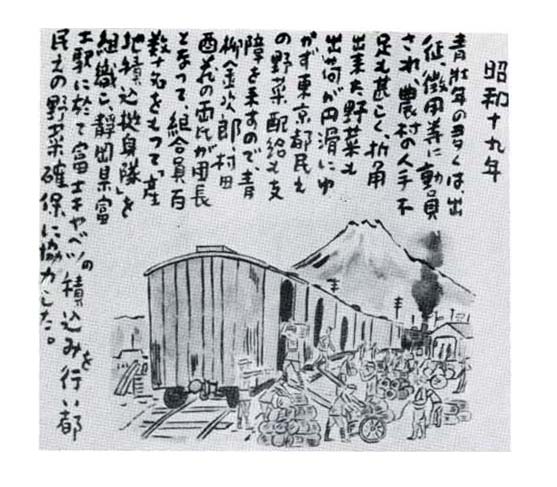 昭和十九年
青壮年の多くは、出
征、徴用等に動員
され、農村の人手不
足も甚しく、折角
出来た野菜も
出荷が円滑にゆ
かず東京都民え
の野菜配給も支
障を来すので、青
柳金次郎村田
の両氏が団長
となって、組合員百
数十名をもって「産
地積込挺身隊」を
組織し、静岡県富
士駅に於て富士キャベツの積込みを行い都
民えの野菜確保に協力した。